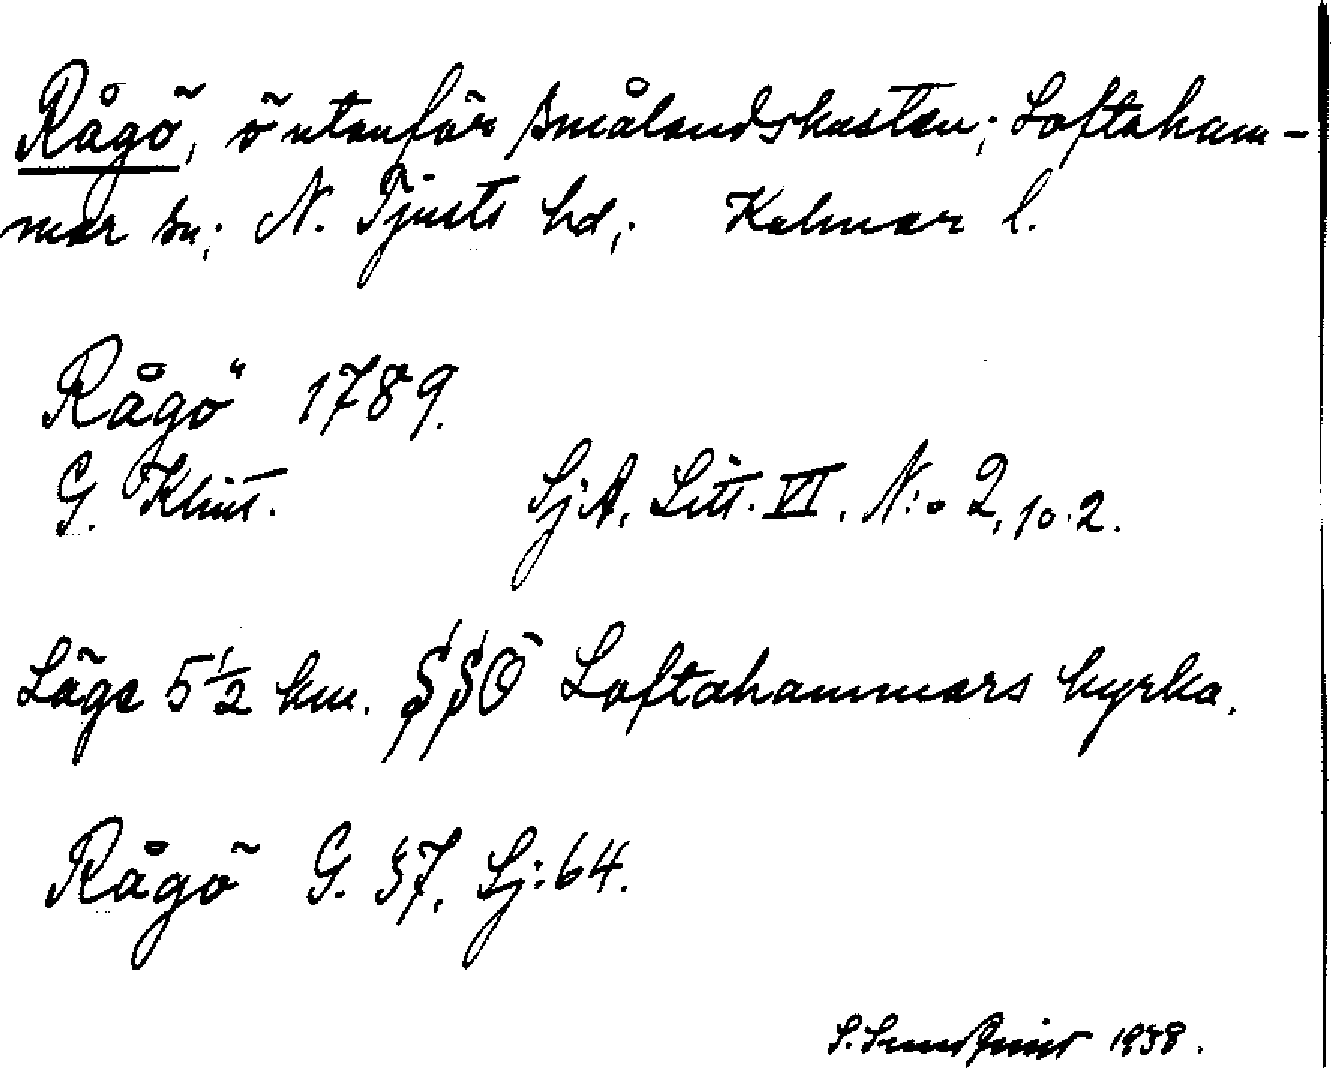 Rågö, ö utanför Smålandskusten; Loftaham-
mar sn; N. Tjusts hd; Kalmar l.
Rågö 1789.
G. Klint. Sj.A. Litt. VI. N:o 2, 10.2.
Läge 5 1/2 km. SSO Loftahammars kyrka.
Rågö G. 37. Sj: 64.
S. 1938.